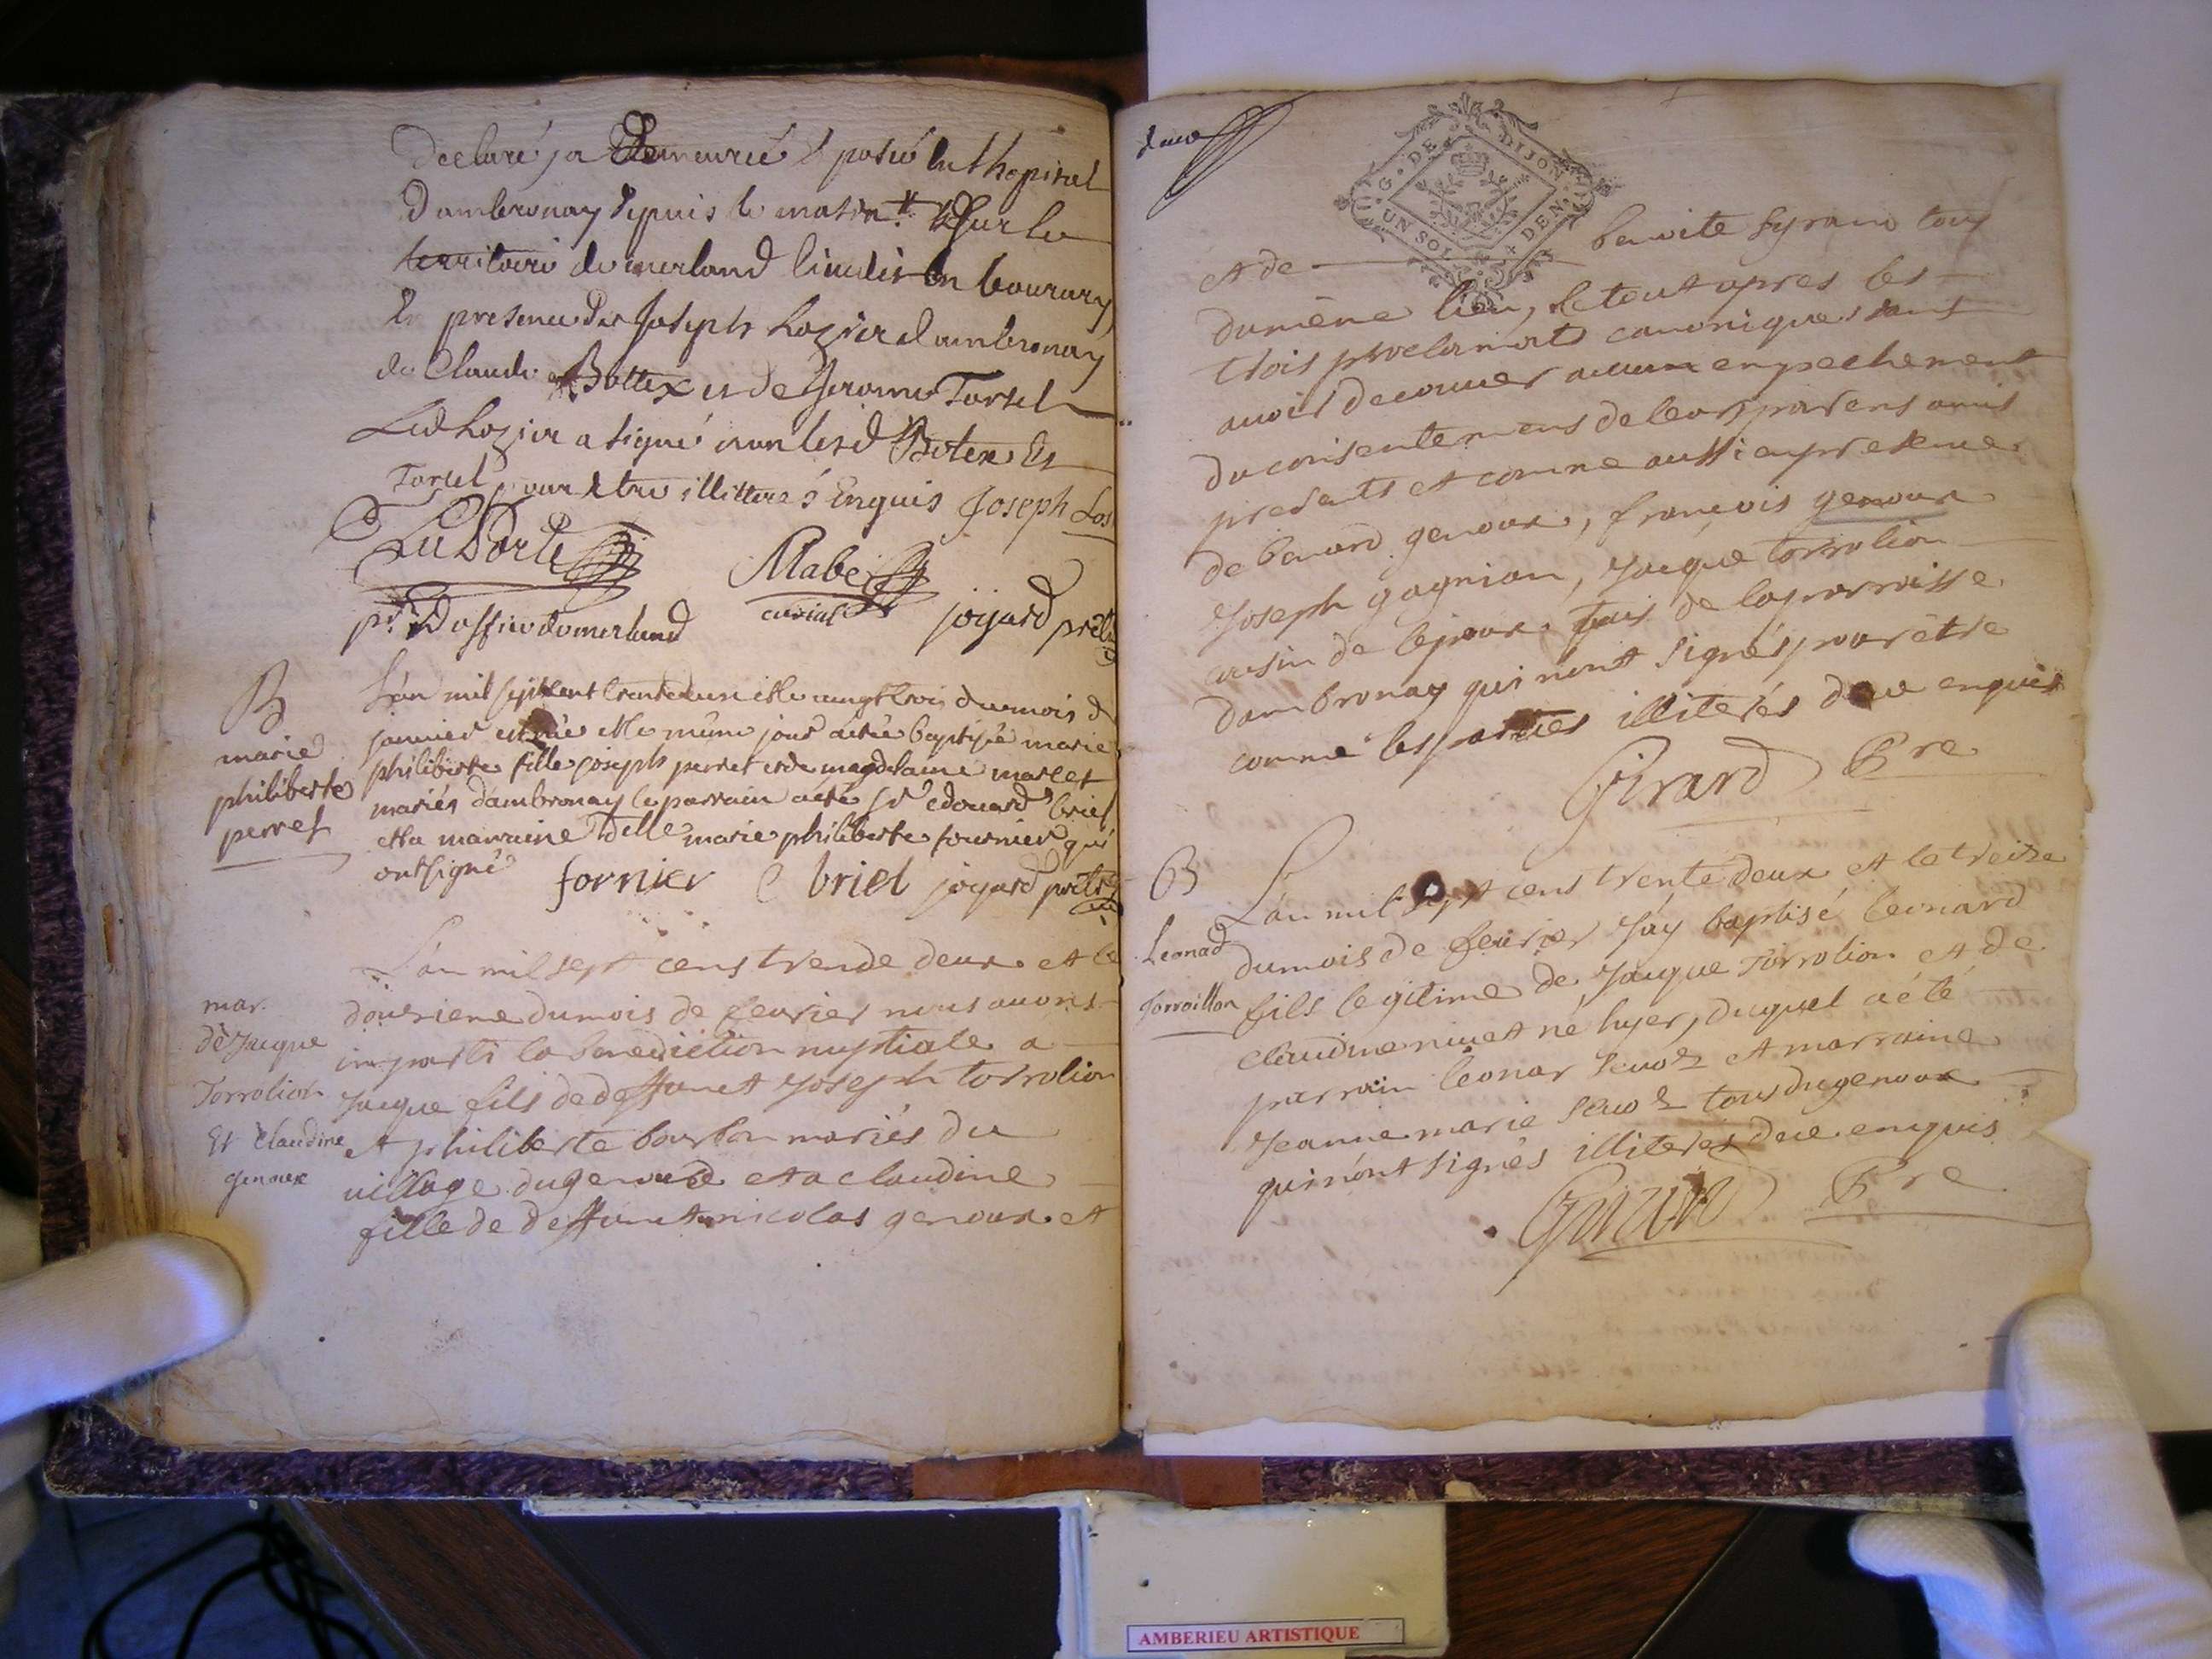 declaré ja demeuré Exposée En Lhopital
Dambronay depuis le matin Sur le
territoire de merland lieudit En bourary
En presence de Joseph Lozier dambronay
de Claude Bottex et de Jerome Torsel
Led Lozier a signé non lesd Botex Et
Torsel pour être illitteres Enquis Joseph Los
LaPorte
Mabe
pr. Doffice de merland
curial
joyard prêtre
B
marie
philiberte
perret
L'an mil sept cent trente deux et le vingt trois du mois de
janvier est née et le même jour a été baptisée marie
philiberte fille joseph perret et de magdelaine marlet
mariés d'ambronay le parrain a été Sr edouard briel
et la marraine Delle marie philiberte fournier qui
ont signé
fornier E briel joyard prêtre
mar.
de Jacque
Torrolion
Et Claudine
genoux
L'an mil sept cens trende deux et le
douzieme du mois de feuvrier nous auons
imparti la benediction nuptiale a
Jacque fils de deffunct Joseph torrolion
et philiberte bourbon mariés du
village du genoud et a claudine
fille de deffunct nicolas genoux et
deux
G. DE DIJON
UN SOL 4 DEN.
et de benoite Syrand tous
du même lieu, le tout apres les
trois proclamats canoniques sans
auoir decouuer aucun empechement
du consentemens de leurs parens amis
presents et comme aussi en presence
de benard genoux, françois genoux
Joseph gagnion, Jacque torrolion
cusin de lepoux tous de la parroisse
dambronay qui n'ont signés pour être
comme les parties illiterés de ce enquis
Girard Pre
B
Leonad
Torroillon
L'an mil sept cens trente deux et le treize
du mois de feurier J'ay baptisé leonard
fils legitime de Jacque Torrolion et de
claudine niuet né hyer, duquel a été
parrain leonar et marraine
Jeanne marie tous du genoux
qui n'ont signés illiterés de ce enquis
Girard Pre
AMBERIEU ARTISTIQUE